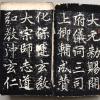 大元敕賜開
府儀同三司
上卿輔成贊
化保運玄教
大宗師志道
弘教沖玄仁